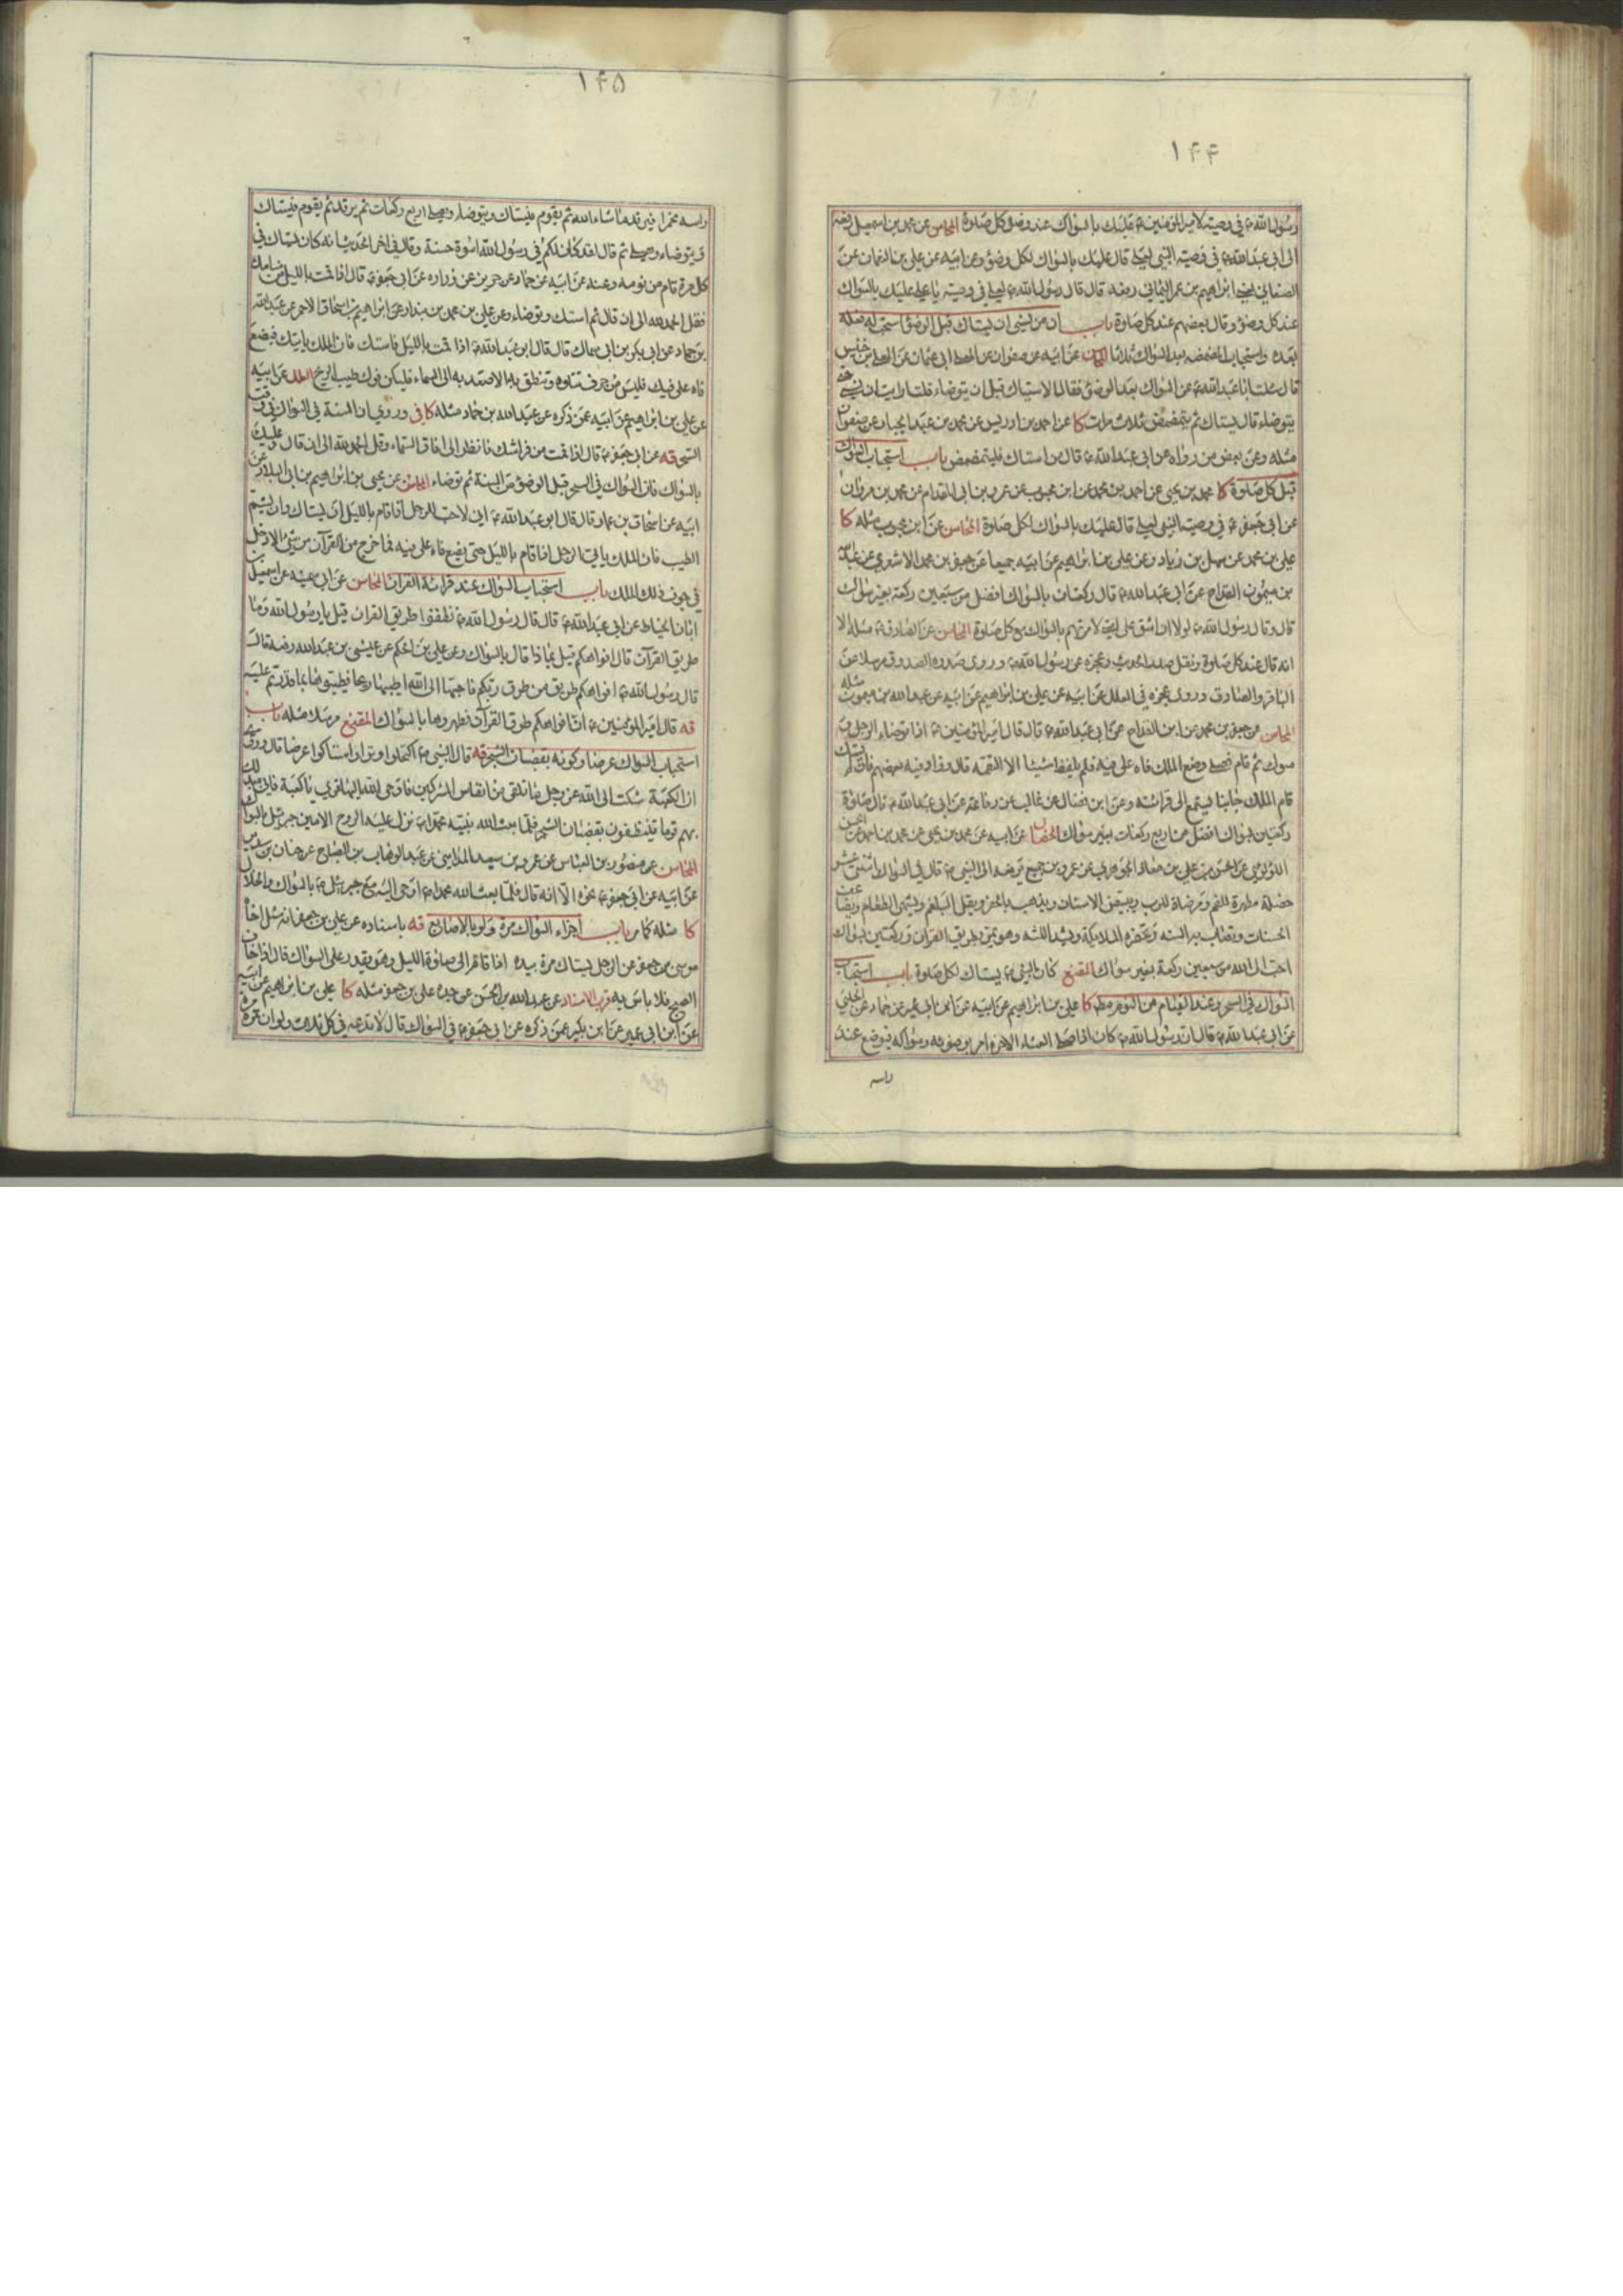 ١٤٤
رسول الله ص في وصيته لامير المؤمنين ع عليك بالسواك عند وضوء كل صلوة المحاسن عن محمد بن اسمعيل رفعه
الى ابي عبد الله ع في وصية النبي لعلي قال عليك بالسواك لكل وضوء وعن ابيه عن علي بن النعمان عن
الصنعاني لعلي ابراهيم بن عمر اليماني رفعه قال قال رسول الله ص لعلي في وصيته يا علي عليك بالسواك
عند كل وضوء وقال بعضهم عند كل صلوة باب ان من نسى ان يستاك قبل الوضوء استحب له فعله
بعده واستحباب المضمضه بعد السواك ثلاثا المحاسن عن ابيه عن صفوان عن المعلى ابي عثمان عن المعلى بن خنيس
قال سئلت ابا عبد الله ع عن السواك بعد الوضوء فقال الاستياك قبل ان يتوضاء قلت ارايت ان نسى حتى
يتوضاء قال يستاك ثم يتمضمض ثلاث مرات كا عن احمد بن ادريس عن محمد بن عبد الجبار عن صفوان
مثله وعن بعض من رواه عن ابي عبد الله ع قال من استاك فليتمضمض باب استحباب السواك
قبل كل صلوة كا محمد بن يحيى عن احمد بن محمد عن ابن محبوب عن عمرو بن ابي المقدام عن محمد بن مروان
عن ابي جعفر ع في وصية النبي لعلي قال عليك بالسواك لكل صلوة المحاسن عن ابن محبوب مثله كا
علي بن محمد عن سهل بن زياد وعن علي بن ابراهيم عن ابيه جميعا عن جعفر بن محمد الاشعري عن عبد الله
بن ميمون القداح عن ابي عبد الله ع قال ركعتان بالسواك افضل من سبعين ركعة بغير سواك
قال وقال رسول الله ص لولا ان اشق على امتي لامرتهم بالسواك مع كل صلوة المحاسن عن الصادق ع مثله الا
انه قال عند كل صلوة ونقل صدر الحديث وعجزه عن رسول الله ص وروى صدره الصدوق مرسلا عن
الباقر والصادق وروى عجزه في العلل عن ابيه عن علي بن ابراهيم عن ابيه عن عبد الله بن ميمون مثله
المحاسن عن جعفر بن محمد عن ابن القداح عن ابي عبد الله ع قال قال امير المؤمنين ع اذا توضاء الرجل و
سوك ثم قام فصلى وضع الملك فاه على فيه فلم يلفظ شيئا الا التقمه قال وزاد فيه بعضهم فان لم يستك
قام الملك جانبا يستمع الى قرائته وعن ابن فضال عن غالب عن رفاعة عن ابي عبد الله ع قال صلوة
ركعتين بسواك افضل من اربع ركعات بغير سواك الخصال عن ابيه عن محمد بن يحيى عن محمد بن احمد عن الحسن
اللؤلؤي عن الحسن بن علي بن يوسف عن معاذ الجوهري عن عمرو بن جميع يرفعه الى النبي ص قال في السواك اثنتى عشر
خصلة مطهرة للفم ومرضاة للرب ويبيض الاسنان ويذهب بالحفر ويقل البلغم ويشهى الطعام ويضاعف
الحسنات وتصاب به السنه وتحضره الملائكة ويشد اللثه وهو يمر بطريق القران وركعتين بسواك
احب الى الله من سبعين ركعة بغير سواك المقنع كان النبي ص يستاك لكل صلوة باب استحباب
السواك في السحر وعند القيام من النوم مطلقا كا علي بن ابراهيم عن ابيه عن ابن ابي عمير عن حماد عن الحلبي
عن ابي عبد الله ع قال ان رسول الله ص كان اذا صلى العشاء الاخره امر بوضوئه وسواكه فيوضع عند
راسه
١٤٥
راسه مخمرا فيرقد ما شاء الله ثم يقوم فيستاك ويتوضاء ويصلى اربع ركعات ثم يرقد ثم يقوم فيستاك
ويتوضاء ويصلى ثم قال لقد كان لكم في رسول الله اسوة حسنة وقال في اخر الحديث انه كان يستاك في
كل مرة قام من نومه وعنه عن ابيه عن حماد عن حريز عن زراره عن ابي جعفر ع قال اذا قمت بالليل من منامك
فقل الحمد لله الى ان قال ثم استك وتوضاء وعن علي بن محمد بن بندار عن ابراهيم بن اسحاق الاحمر عن عبد الله
بن حماد عن ابي بكر بن ابي سماك قال قال ابو عبد الله ع اذا قمت بالليل فاستك فان الملك ياتيك فيضع
فاه على فيك فليس من حرف تتلوه وتنطق به الا صعد به الى السماء فليكن فوك طيب الريح العلل عن ابيه
عن علي بن ابراهيم عن ابيه عمن ذكره عن عبد الله بن حماد مثله كافي وروي ان السنة في السواك في وقت
السحر قه عن ابي جعفر ع قال اذا قمت من فراشك فانظر الى افاق السماء وقل الحمد لله الى ان قال وعليك
بالسواك فان السواك في السحر قبل الوضوء من السنة ثم توضاء المحاسن عن يحيى بن ابراهيم بن ابي البلاد عن
ابيه عن اسحاق بن عمار قال قال ابو عبد الله ع اني لاحب للرجل اذا قام بالليل ان يستاك وان يشم
الطيب فان الملك ياتي الرجل اذا قام بالليل حتى يضع فاه على فيه فما خرج من القرآن من شئ الا دخل
في جوف ذلك الملك باب استحباب السواك عند قرائة القران المحاسن عن ابي سمينه عن اسمعيل بن
ابان الحناط عن ابي عبد الله ع قال قال رسول الله ص نظفوا طريق القران قيل يا رسول الله وما
طريق القرآن قال افواهكم قيل بماذا قال بالسواك وعن علي بن الحكم عن عيسى بن عبد الله رفعه قال
قال رسول الله ص افواهكم طريق من طرق ربكم فاحبها الى الله اطيبها ريحا فطيبوها بما قدرتم عليه
قه قال امير المؤمنين ع ان افواهكم طرق القرآن فطهروها بالسواك المقنع مرسلا مثله باب
استحباب السواك عرضا وكونه بقضبان الشجر قه قال النبي ص اكتحلوا وترا واستاكوا عرضا قال وروى
ان الكعبة شكت الى الله عز وجل ما تلقى من انفاس المشركين فاوحى الله اليها قري يا كعبة فاني مبدلك
بهم قوما يتنظفون بقضبان الشجر فلما بعث الله نبيه محمدا ص نزل عليه الروح الامين جبرئيل بالسواك
المحاسن عن منصور بن العباس عن عمرو بن سعيد المدايني عن عبد الوهاب بن الصباح عن حنان بن سدير
عن ابيه عن ابي جعفر ع نحوه الا انه قال فلما بعث الله محمدا ص اوحى اليه مع جبرئيل ع بالسواك والخلال
كا مثله كما مر باب اجزاء السواك مرة ولو بالاصابع قه باسناده عن علي بن جعفر انه سئل اخاه
موسى بن جعفر عن الرجل يستاك مرة بيده اذا قام الى صلوة الليل وهو يقدر على السواك قال اذا خاف
الصبح فلا باس به قرب الاسناد عن عبد الله بن الحسن عن جده علي بن جعفر مثله كا علي بن ابراهيم عن ابيه
عن ابن ابي عمير عن ابن بكير عمن ذكره عن ابي جعفر ع في السواك قال لا تدعه في كل ثلاث ولو ان تمره مرة